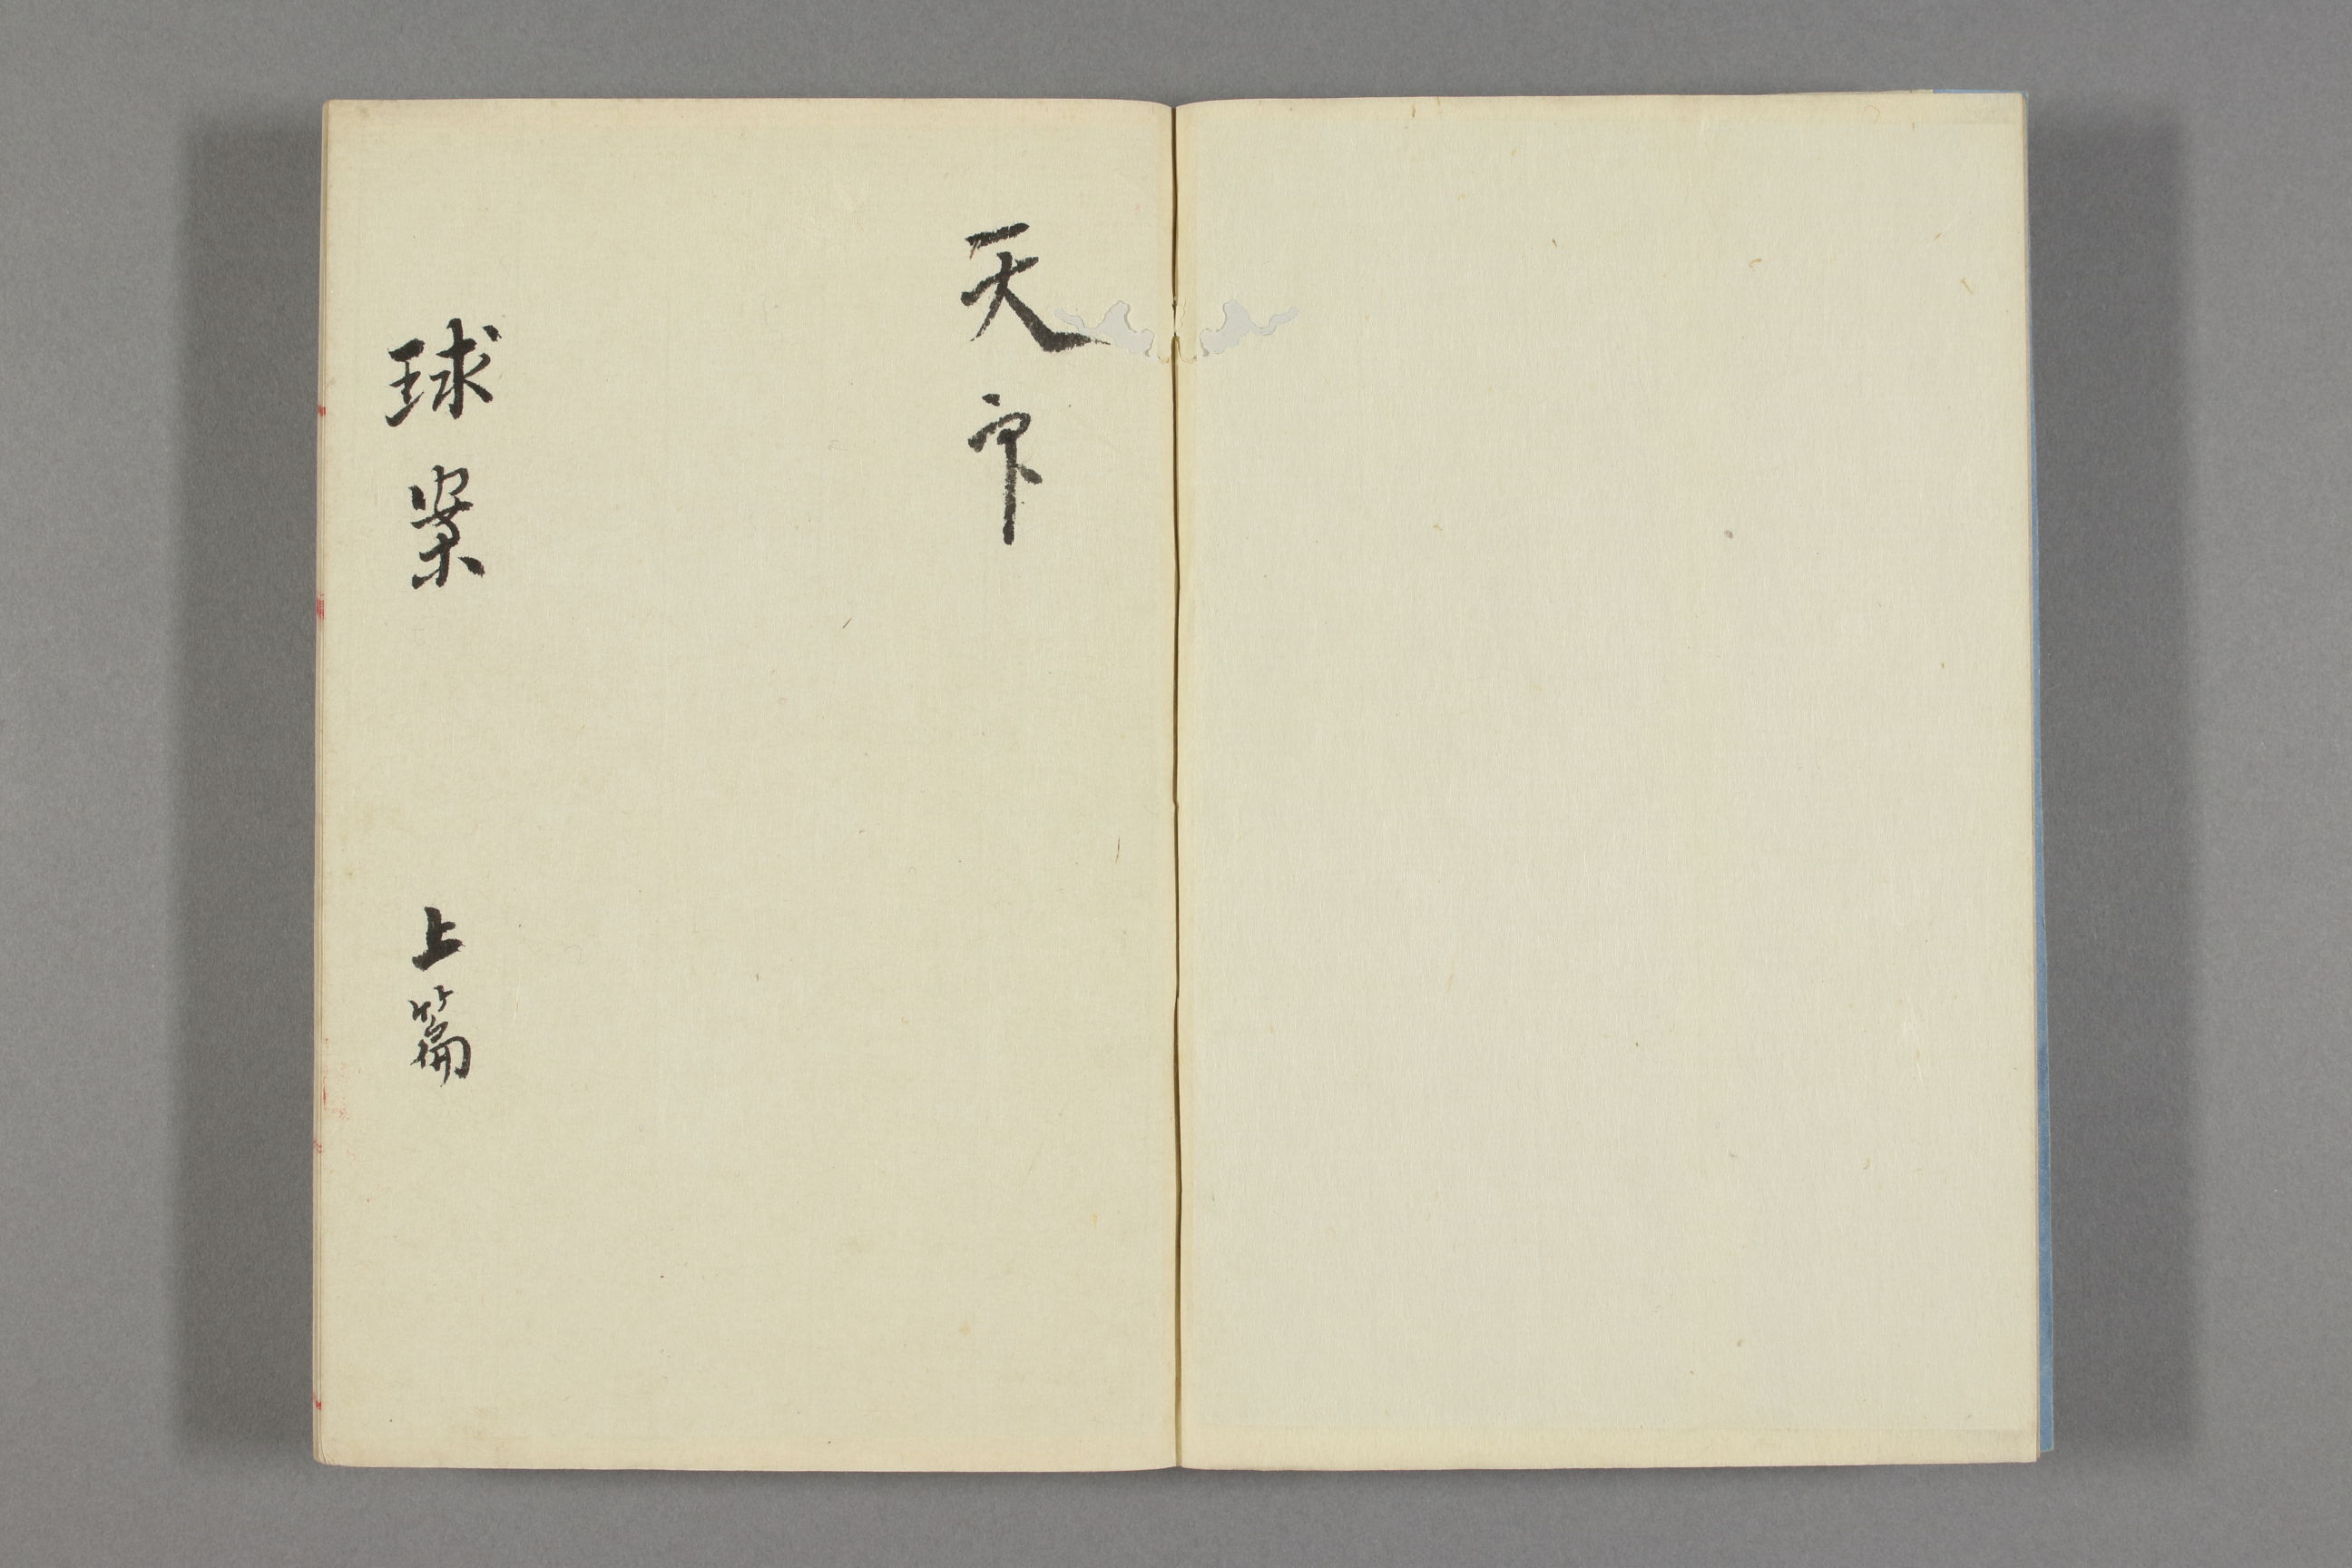 天
球案 上篇